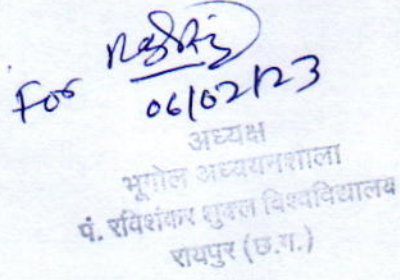 For
06/02/23
अध्यक्ष
भूगोल अध्ययनशाला
पं. रविशंकर शुक्ल विश्वविद्यालय
रायपुर (छ.ग.)